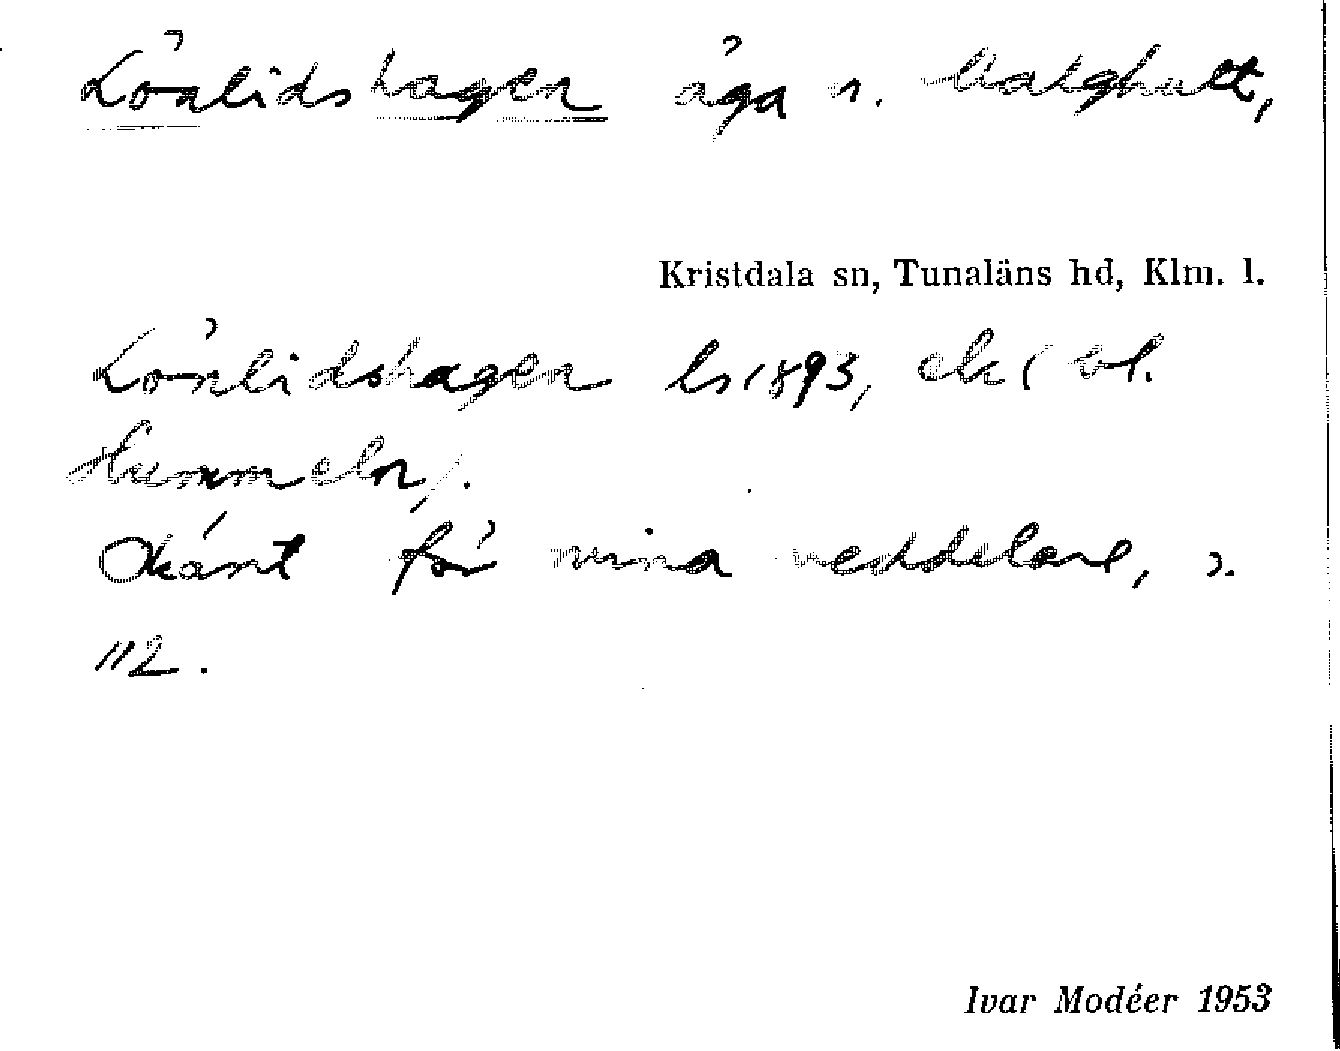 Lönlidshagen äga n. Malghult,
Kristdala sn, Tunaläns hd, Klm. l.
Lönlidshagen ls 1893, ek (bl.
Hummeln).
Okänt för mina meddelare, s.
112.
Ivar Modéer 1953